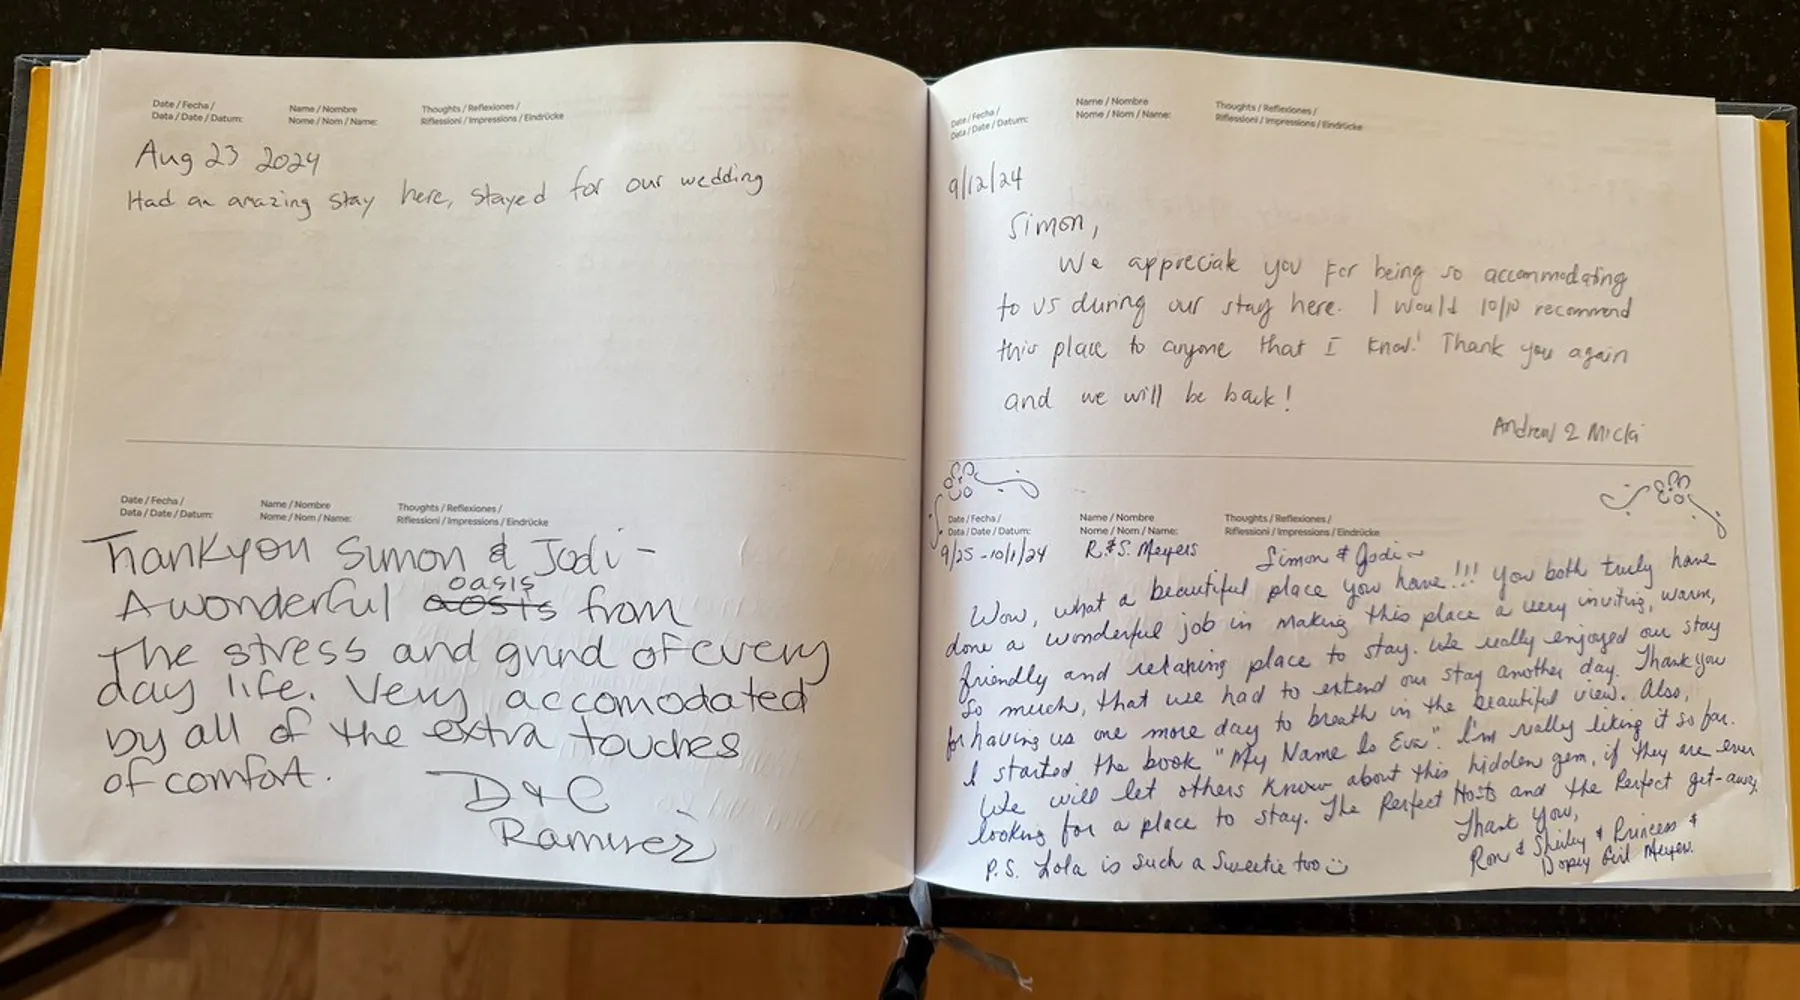 Date / Fecha /
Data / Date / Datum:
Name / Nombre
Nome / Nom / Name:
Thoughts / Reflexiones /
Riflessioni / Impressions / Eindrücke
Aug 23 2024
Had an amazing stay here, stayed for our wedding
Date / Fecha /
Data / Date / Datum:
Name / Nombre
Nome / Nom / Name:
Thoughts / Reflexiones /
Riflessioni / Impressions / Eindrücke
Thankyou Simon & Jodi -
oasis
A wonderful aosts from
the stress and grind of every
day life. Very accomodated
by all of the extra touches
of comfort.
D & C
Ramirez
Date / Fecha /
Data / Date / Datum:
Name / Nombre
Nome / Nom / Name:
Thoughts / Reflexiones /
Riflessioni / Impressions / Eindrücke
9/12/24
Simon,
We appreciate you for being so accommodating
to us during our stay here. I would 10/10 recommend
this place to anyone that I know! Thank you again
and we will be back!
Andrew & Micki
Date / Fecha /
Data / Date / Datum:
Name / Nombre
Nome / Nom / Name:
Thoughts / Reflexiones /
Riflessioni / Impressions / Eindrücke
9/25 - 10/1/24
R. & S. Meyers
Simon & Jodi ~
Wow, what a beautiful place you have!!! You both truly have
done a wonderful job in making this place a very inviting, warm,
friendly and relaxing place to stay. We really enjoyed our stay
so much, that we had to extend our stay another day. Thank you
for having us one more day to breath in the beautiful view. Also,
I started the book "My Name Is Eva". I'm really liking it so far.
We will let others know about this hidden gem, if they are ever
looking for a place to stay. The Perfect Hosts and the Perfect get-away.
Thank You,
Ron & Shirley & Princess &
Dopey Girl Meyers.
P.S. Lola is such a Sweetie too